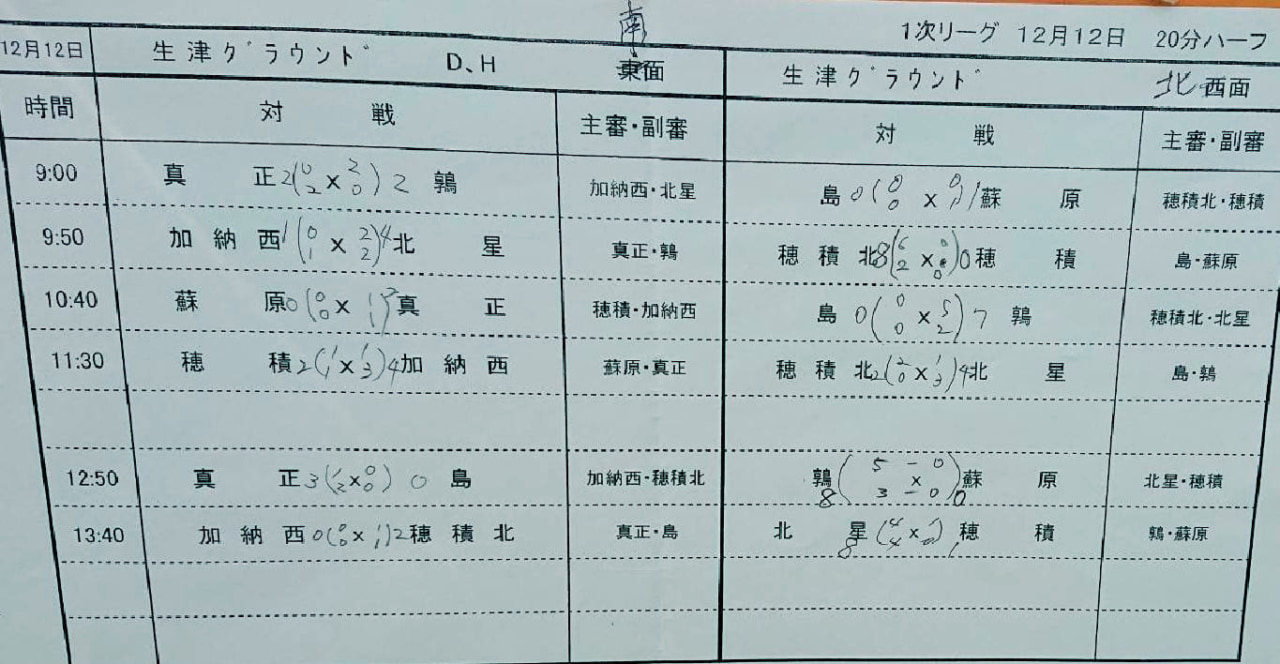 1次リーグ 12月12日 20分ハーフ
12月12日 生津グラウンド D、H 南 東面 生津グラウンド 北 西面
時間 対戦 主審・副審 対戦 主審・副審
9:00 真正 2(0 2 × 2 0)2 鶉 加納西・北星 島 0(0 0 × 0 1)1 蘇原 穂積北・穂積
9:50 加納西 1(0 1 × 2 2)4 北星 真正・鶉 穂積北 8(6 2 × 0 0)0 穂積 島・蘇原
10:40 蘇原 0(0 0 × 1 1)2 真正 穂積・加納西 島 0(0 0 × 5 2)7 鶉 穂積北・北星
11:30 穂積 2(1 1 × 1 3)4 加納西 蘇原・真正 穂積北 2(2 0 × 1 3)4 北星 島・鶉
12:50 真正 3(1 2 × 0 0)0 島 加納西・穂積北 鶉 8(5 - 0 × 3 - 0)0 蘇原 北星・穂積
13:40 加納西 0(0 0 × 1 1)2 穂積北 真正・島 北星 8(4 4 × )1 穂積 鶉・蘇原